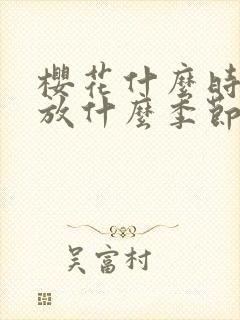 櫻花什麼時
放什麼季節
吳富村